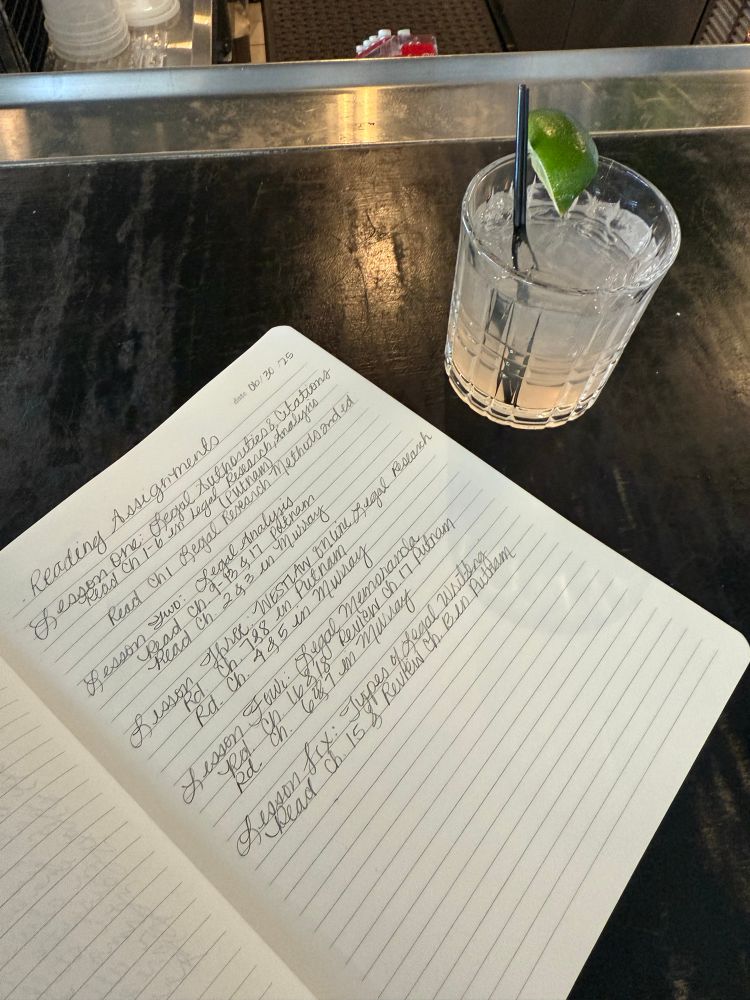 date 06/30/25
Reading Assignments
Lesson One: Legal Authorities & Citations
Read Ch 1-6 in Legal Research, Analysis
(Putnam)
Read Ch 1 Legal Research Methods 2nd ed
Lesson Two: Legal Analysis
Read Ch 9-13 & 17 Putnam
Read Ch. 2 & 3 in Murray
Lesson Three: WESTLAW Online Legal Research
Rd Ch. 7 & 8 in Putnam
Rd. Ch. 4 & 5 in Murray
Lesson Four: Legal Memoranda
Rd. Ch 16 & 18 Review Ch 17 Putnam
Rd Ch. 6 & 7 in Murray
Lesson Six: Types of Legal Writing
Read Ch 15 & Review Ch. 13 in Putnam